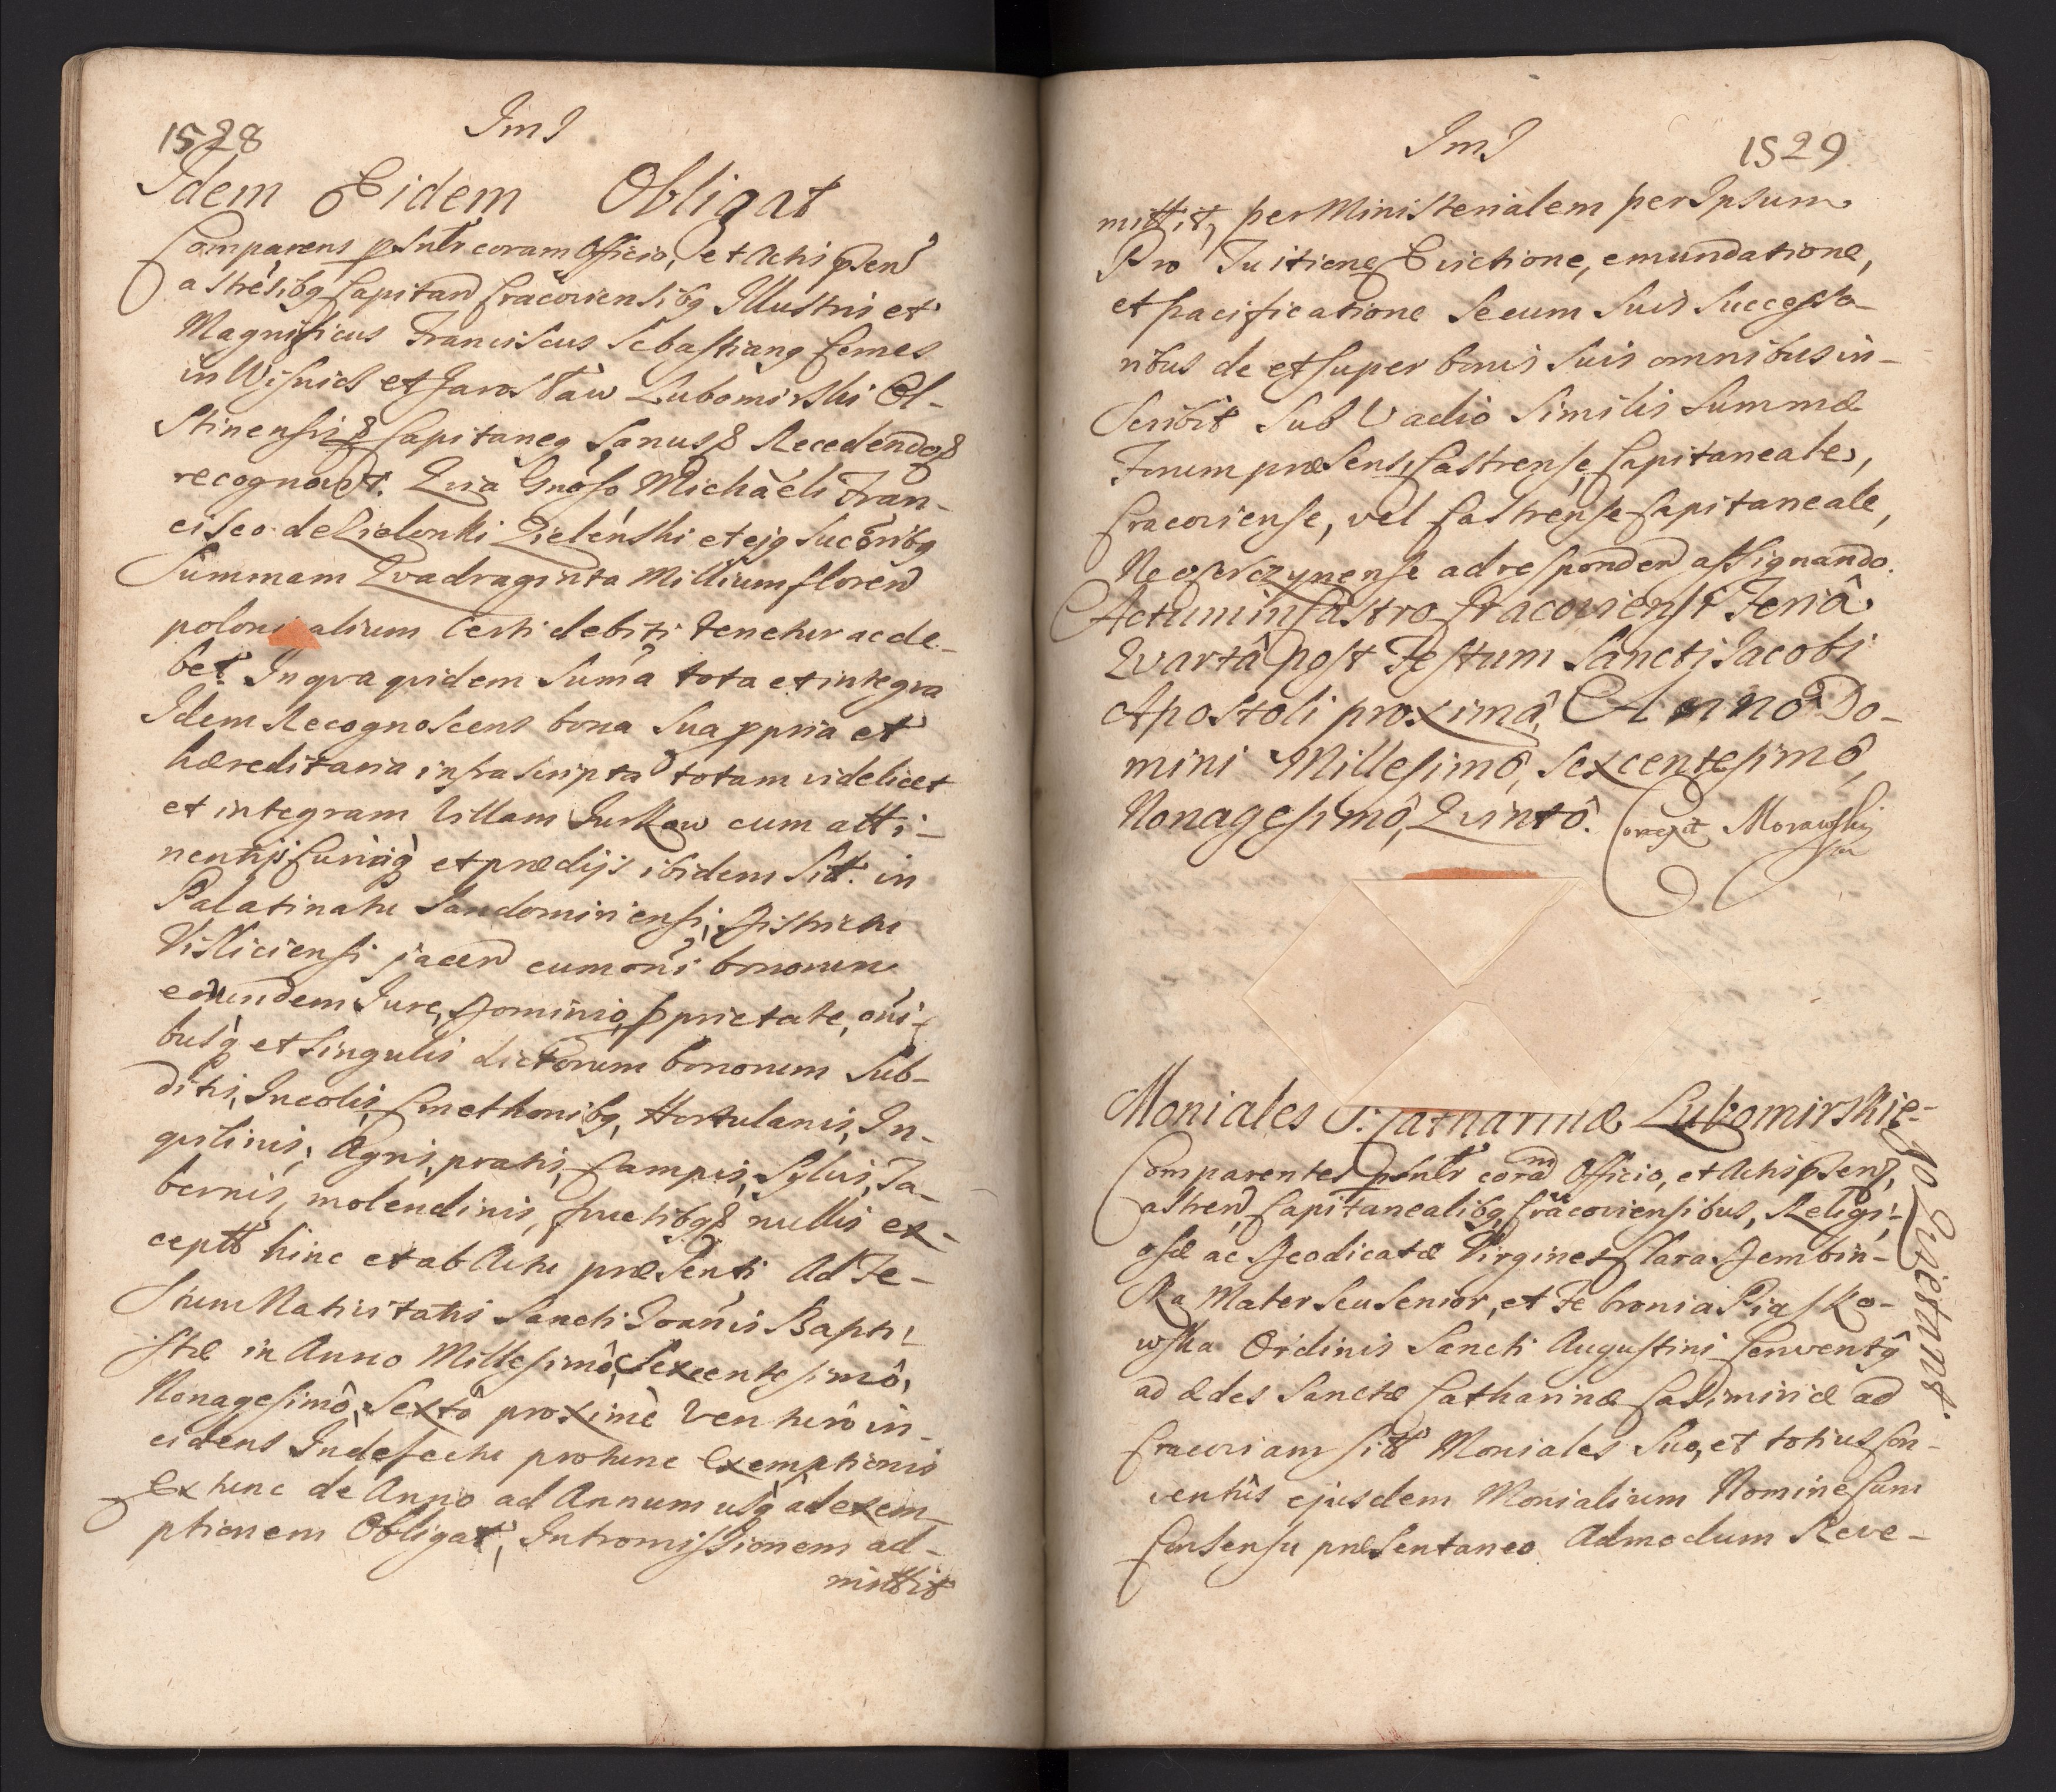 1528
ImJ
Idem Eidem Obligat
Comparens pšntr coram Officio, et Actis pšen
Castrēsibq Capitan Cracoviensibq Illustris et
Magnificus Franciscus Sebastianq Comes
in Wisnicz et Jarosław Lubomirski Ol-
stinensis & Capitaneq Sanus & Recedendo &
recognovit. Qvia Gnōso Michaeli Fran-
cisco de Zielonki Zieleński et ejq Succōribq
Summam Qvadraginta Millium floren
polonicalium Certi debiti tenetur ac de-
bet. In qva qvidem Sum̃a tota et integra
Idem Recognoscens bona Sua ppria et
hæreditaria infrascripta totam videlicet
et integram Villam Jurkow cum atti-
nentijs Curiaq et prædijs ibidem Sit. in
Palatinatu Sandomiriensi, Districtu
Visliciensi jacen cum om̃i bonorum
eorundem Jure, Dominio, Pprietate, om̃i-
busq et Singulis dictorum bonorum Sub-
ditis, Incolis, Cmethonibq, Hortulanis, In-
qvilinis, Agris, pratis, Campis, Sylvis, Ta-
bernis, molendinis, fructibq & nullis ex-
ceptis hinc et ab Actu præsenti Ad Fe-
stum Nativitatis Sancti Joannis Bapti-
stæ in Anno Millesimô, Sexcentesimô,
Nonagesimô, Sextô proximè Venturô in-
cidens In defectu pro tunc Exemptionis
Ex tunc de Anno ad Annum usq ad exem-
ptionem Obligat, Intromissionem ad-
mittit
ImJ
1529
mittit, per Ministerialem per Ipsum
Pro Tuitione Evictione, emundatione,
et pacificatione Se cum Suis Successo-
ribus de et super bonis Suis omnibus in-
scribit Sub Vadio Similis Summæ
Forum præsens, Castrense Capitaneale,
Cracoviense, vel Castrense Capitaneale,
Neoforczynense ad responden assignando.
Actum in Castro Cracoviensi Feriâ
Qvartâ post Festum Sancti Jacobi
Apostoli proximâ, Anno Do-
mini Millesimô, Sexcentesimô,
Nonagesimô, Qvintô. Correxit Morawski
Moniales S. Catharinæ Lubomirskie-
go Qvietant.
Comparentes pšntr coram Officio, et Actis pšen,
Castren, Capitanealibq, Cracoviensibus, Religi-
osæ ac Deodicatæ Virgines Clara Dembin-
ska Mater Seu Senior, et Febronia Piasko-
wska Ordinis Sancti Augustini Conventq
ad ædes Sanctæ Catharinæ Casimiriæ ad
Cracoviam sitt Moniales Suo, et totius Con-
ventûs ejusdem Monialium Nomine Cum
Consensu præsentaneo Admodum Reve-